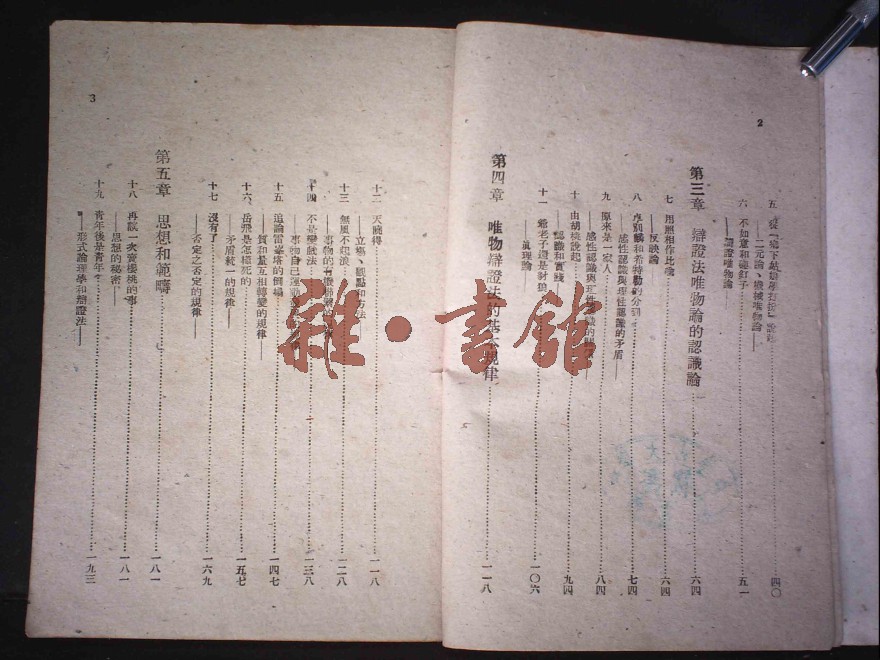 2
五 從「鄉下姑 四〇
——二元論、機械唯物論——
六 不如意和碰釘子 五一
——辯證唯物論——
第三章 辯證法唯物論的認識論 六四
七 用照相作比喻 六四
——反映論——
八 卓別麟和希特勒的分別 七四
——感性認識與理性認識的矛盾——
九 原來是一家人 八四
——感性認識與理性認識的
十 由胡桃說起 九四
——認識和實踐——
十一 爺老子還是豺狼 一〇六
——真理論——
第四章 唯物辯證法的基本規律 一一八
3
十二 天曉得 一一八
——立場、觀點和方法——
十三 無風不起浪 一二八
——事物的有機聯繫的
十四 不是變戲法 一三八
——事物
十五 追論雷峯塔的倒塌 一四七
——質和量互相轉變的規律——
十六 岳飛是怎樣死的 一五七
——矛盾統一的規律——
十七 沒有了 一六九
——否定之否定的規律——
第五章 思想和範疇 一八一
十八 再談一次賣櫻桃的事 一八一
——思想的秘密——
十九 青年後是青年 一九三
——形式論理學和辯證法——
雜·書館